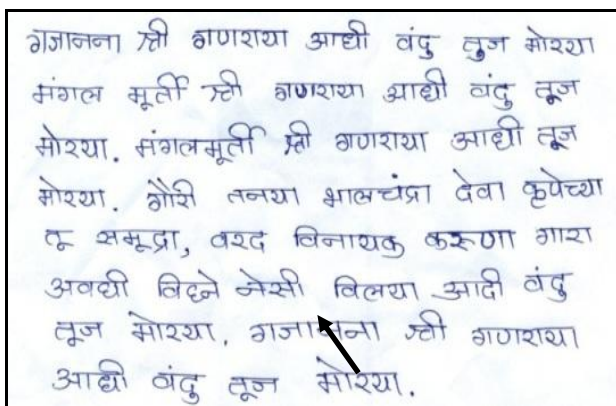 गजानना श्री गणराया आधी वंदु तुज मोरया
मंगल मूर्ती श्री गणराया आधी वंदु तूज
मोरया. मंगलमूर्ती श्री गणराया आधी तूज
मोरया. गौरी तनया भालचंद्रा देवा कृपेच्या
तू समूद्रा, वरद विनायक करूणा गारा
अवघी विघ्ने नेसी विलया आदी वंदु
तूज मोरया. गजानना श्री गणराया
आधी वंदु तूज मोरया.